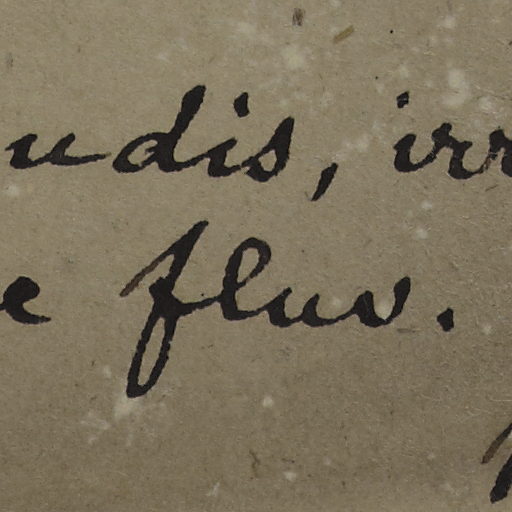 udis, irr
e fluv.